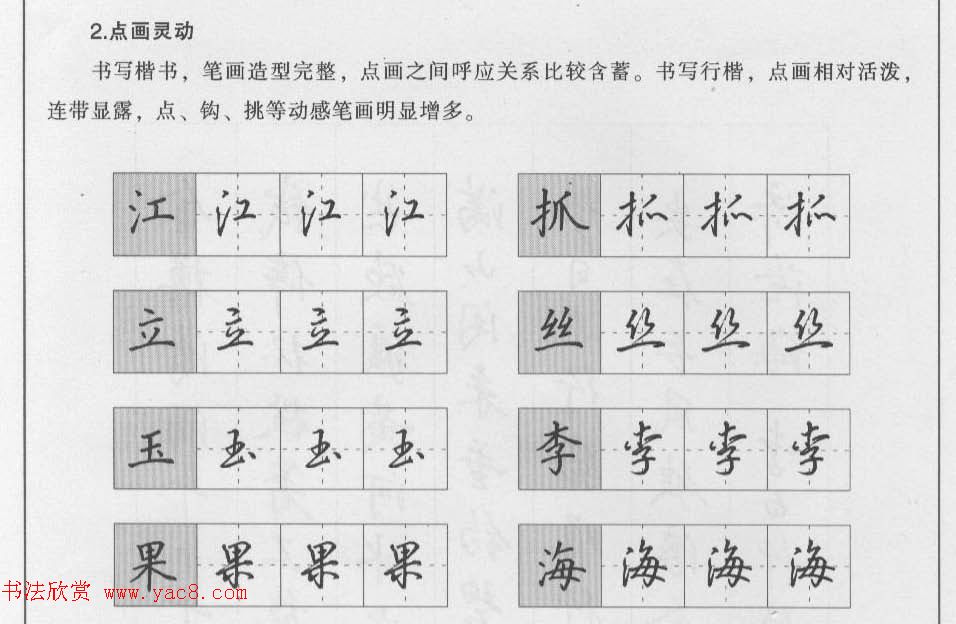 2.点画灵动
书写楷书，笔画造型完整，点画之间呼应关系比较含蓄。书写行楷，点画相对活泼，
连带显露，点、钩、挑等动感笔画明显增多。
江江江江 抓抓抓抓
立立立立 丝丝丝丝
玉玉玉玉 李李李李
果果果果 海海海海
书法欣赏 www.yac8.com